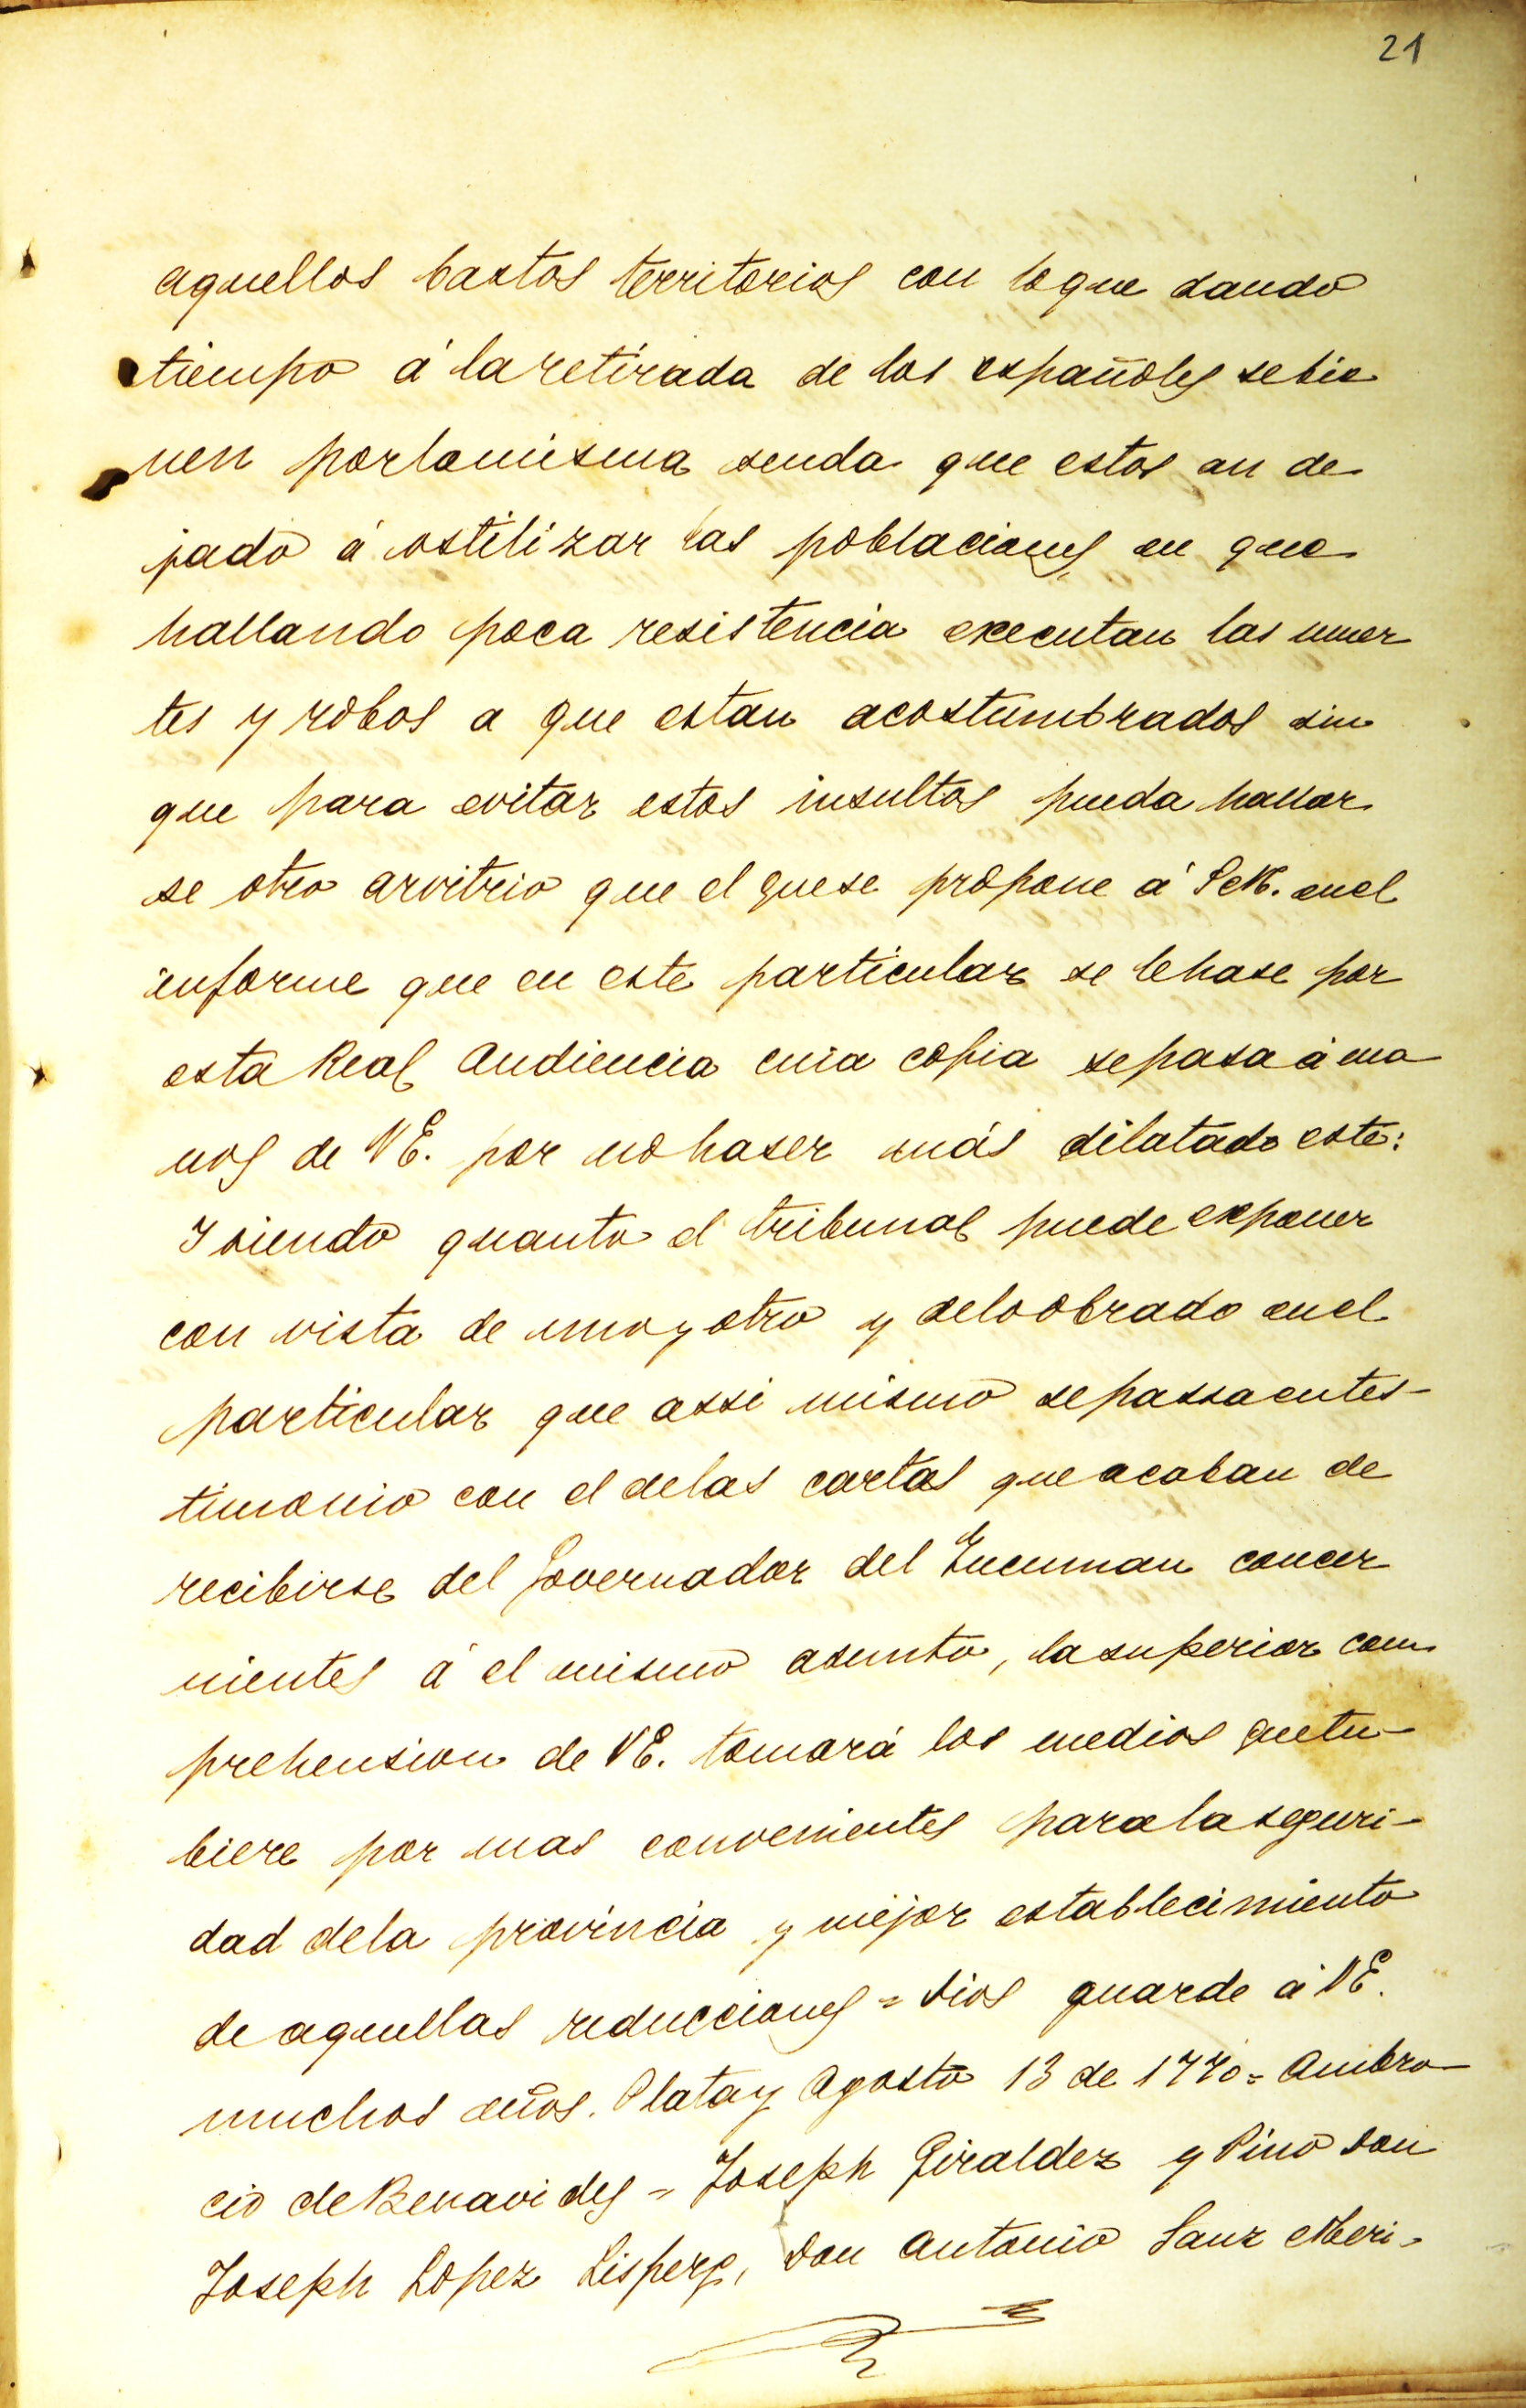 21
aquellos bastos territorios con loque dando
tiempo á laretirada de los españoles sebie
nen porlamisma senda que estos an de
jado á ostilizar las poblaciones en que
hallando poca resistencia executan las muer
tes y robos a que estan acostumbrados sin
que para evitar estos insultos pueda hallar
se otro arvitrio que el quese propone á S.M. enel
informe que en este particular se lehase por
esta Real Audiencia cuia copia sepasa á ma
nos de VE. por nohaser más dilatado este:
Y siendo quanto el tribunal puede exponer
con vista de unoyotro y deloobrado enel
particular que assi mismo sepassaentes-
timonio con el delas cartas que acaban de
recibirse del Governador del Tucuman concer
nientes á el mismo asunto, lasuperior com
prehension de VE. tomará los medios quetu-
biere por mas convenientes paralaseguri-
dad dela provincia y mejor establecimiento
deaquellas reducciones = Dios guarde á VE.
muchos años. Platay Agosto 13 de 1770 = Ambro
cio deBenavides = Joseph Giraldez y Pino Don
Joseph Lopez Lisperg, Don Antonio Sanz Meri-